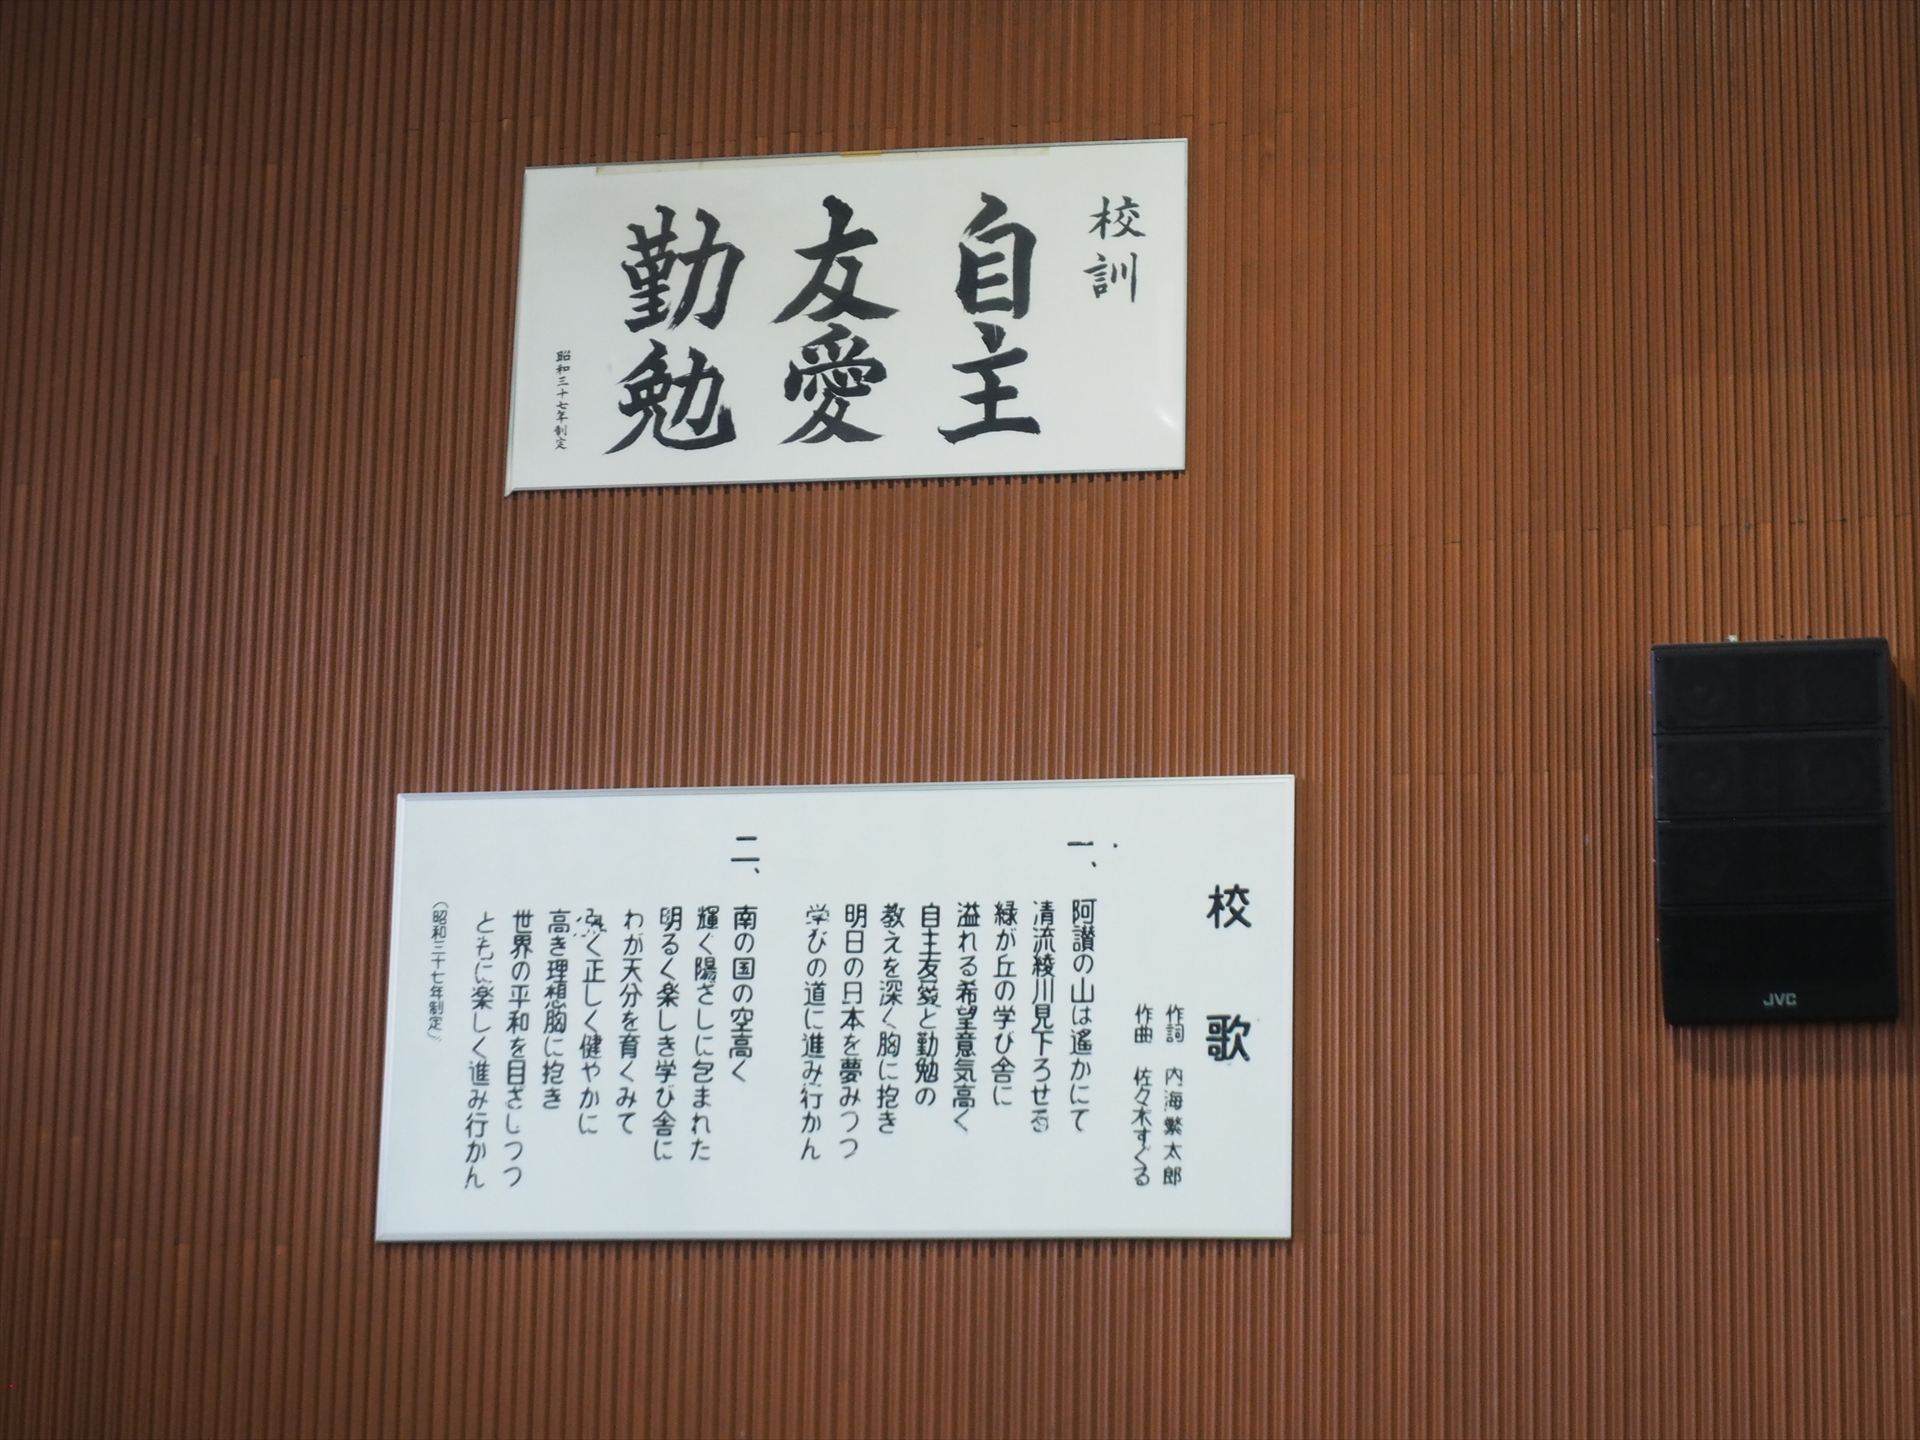 校訓
自主
友愛
勤勉
昭和三十七年制定
校歌
作詞 内海繁太郎
作曲 佐々木すぐる
一、
阿讃の山は遙かにて
清流綾川見下ろせる
緑が丘の学び舎に
溢れる希望意気高く
自主友愛と勤勉の
教えを深く胸に抱き
明日の日本を夢みつつ
学びの道に進み行かん
二、
南の国の空高く
輝く陽ざしに包まれた
明るく楽しき学び舎に
わが天分を育くみて
強く正しく健やかに
高き理想胸に抱き
世界の平和を目ざしつつ
ともに楽しく進み行かん
（昭和三十七年制定）
JVC